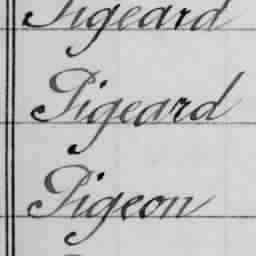 Pigeard
Pigeard
Pigeon